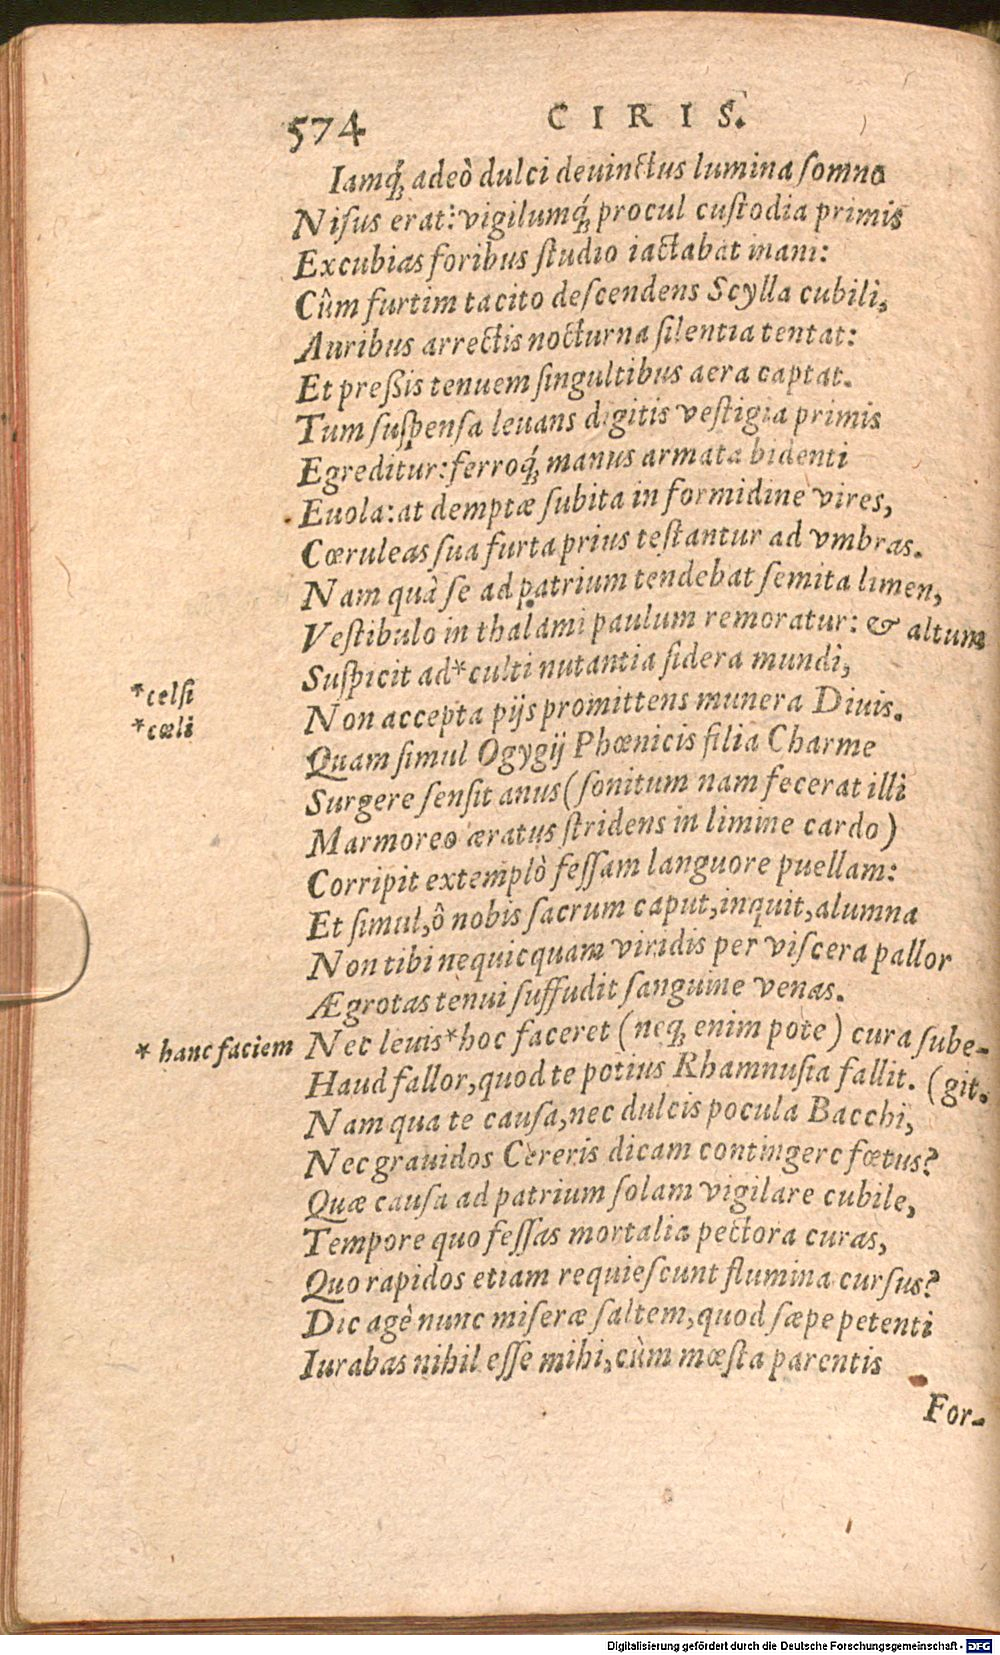 574 CIRIS.
Iamq́; adeò dulci deuinctus lumina somno
Nisus erat: vigilumq́; procul custodia primis
Excubias foribus studio iactabat inani:
Cûm furtim tacito descendens Scylla cubili,
Auribus arrectis nocturna silentia tentat:
Et pressis tenuem singultibus aera captat.
Tum suspensa leuans digitis vestigia primis
Egreditur: ferroq́; manus armata bidenti
Euola: at demptæ subita in formidine vires,
Cœruleas sua furta prius testantur ad vmbras.
Nam quà se ad patrium tendebat semita limen,
Vestibulo in thalami paulum remoratur: & altum
*celsi Suspicit ad*culti nutantia sidera mundi,
*cœli Non accepta pijs promittens munera Diuis.
Quam simul Ogygij Phœnicis filia Charme
Surgere sensit anus (sonitum nam fecerat illi
Marmoreo æratus stridens in limine cardo)
Corripit extemplò fessam languore puellam:
Et simul, ô nobis sacrum caput, inquit, alumna
Non tibi nequicquam viridis per viscera pallor
Ægrotas tenui suffudit sanguine venas.
* hanc faciem Nec leuis*hoc faceret (neq; enim pote) cura sube-
Haud fallor, quod te potius Rhamnusia fallit. (git.
Nam qua te causa, nec dulcis pocula Bacchi,
Nec grauidos Cereris dicam contingere fœtus?
Quæ causa ad patrium solam vigilare cubile,
Tempore quo fessas mortalia pectora curas,
Quo rapidos etiam requiescunt flumina cursus?
Dic agè nunc miseræ saltem, quod sæpe petenti
Iurabas nihil esse mihi, cùm mœsta parentis
For-
Digitalisierung gefördert durch die Deutsche Forschungsgemeinschaft - DFG